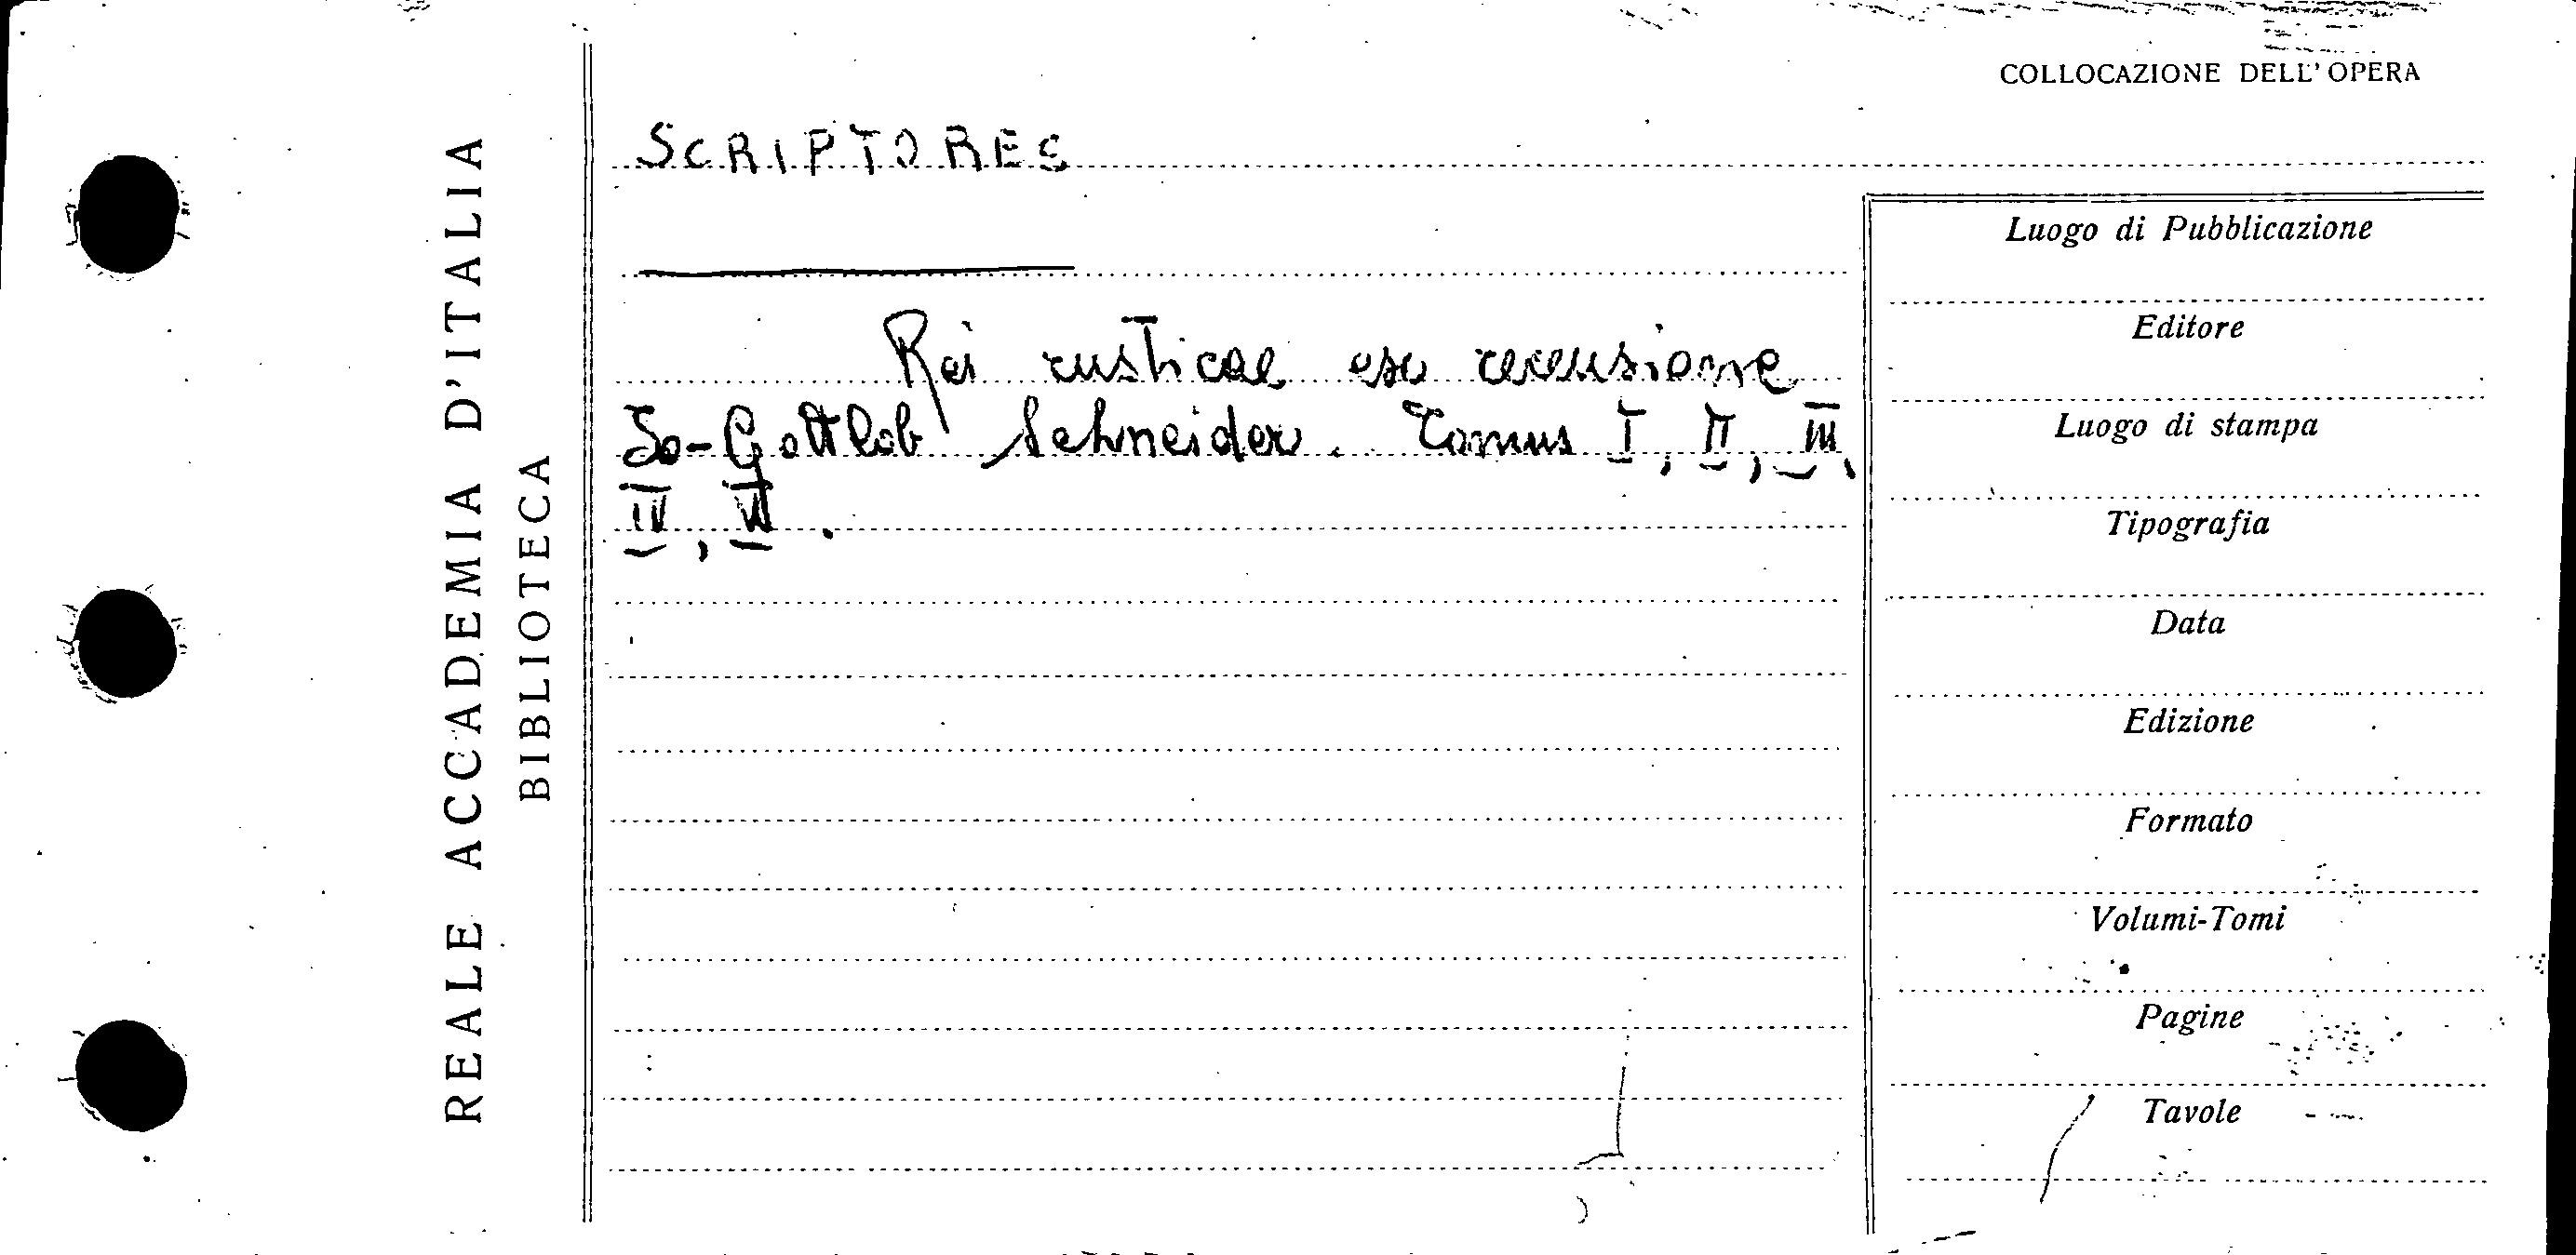 REALE ACCADEMIA D'ITALIA
BIBLIOTECA
COLLOCAZIONE DELL'OPERA
SCRIPTORES
Rei rusticae ex recensione
Jo-Gottlob Schneider. Tomus I, II, III,
IV, VI.
Luogo di Pubblicazione
Editore
Luogo di stampa
Tipografia
Data
Edizione
Formato
Volumi-Tomi
Pagine
Tavole